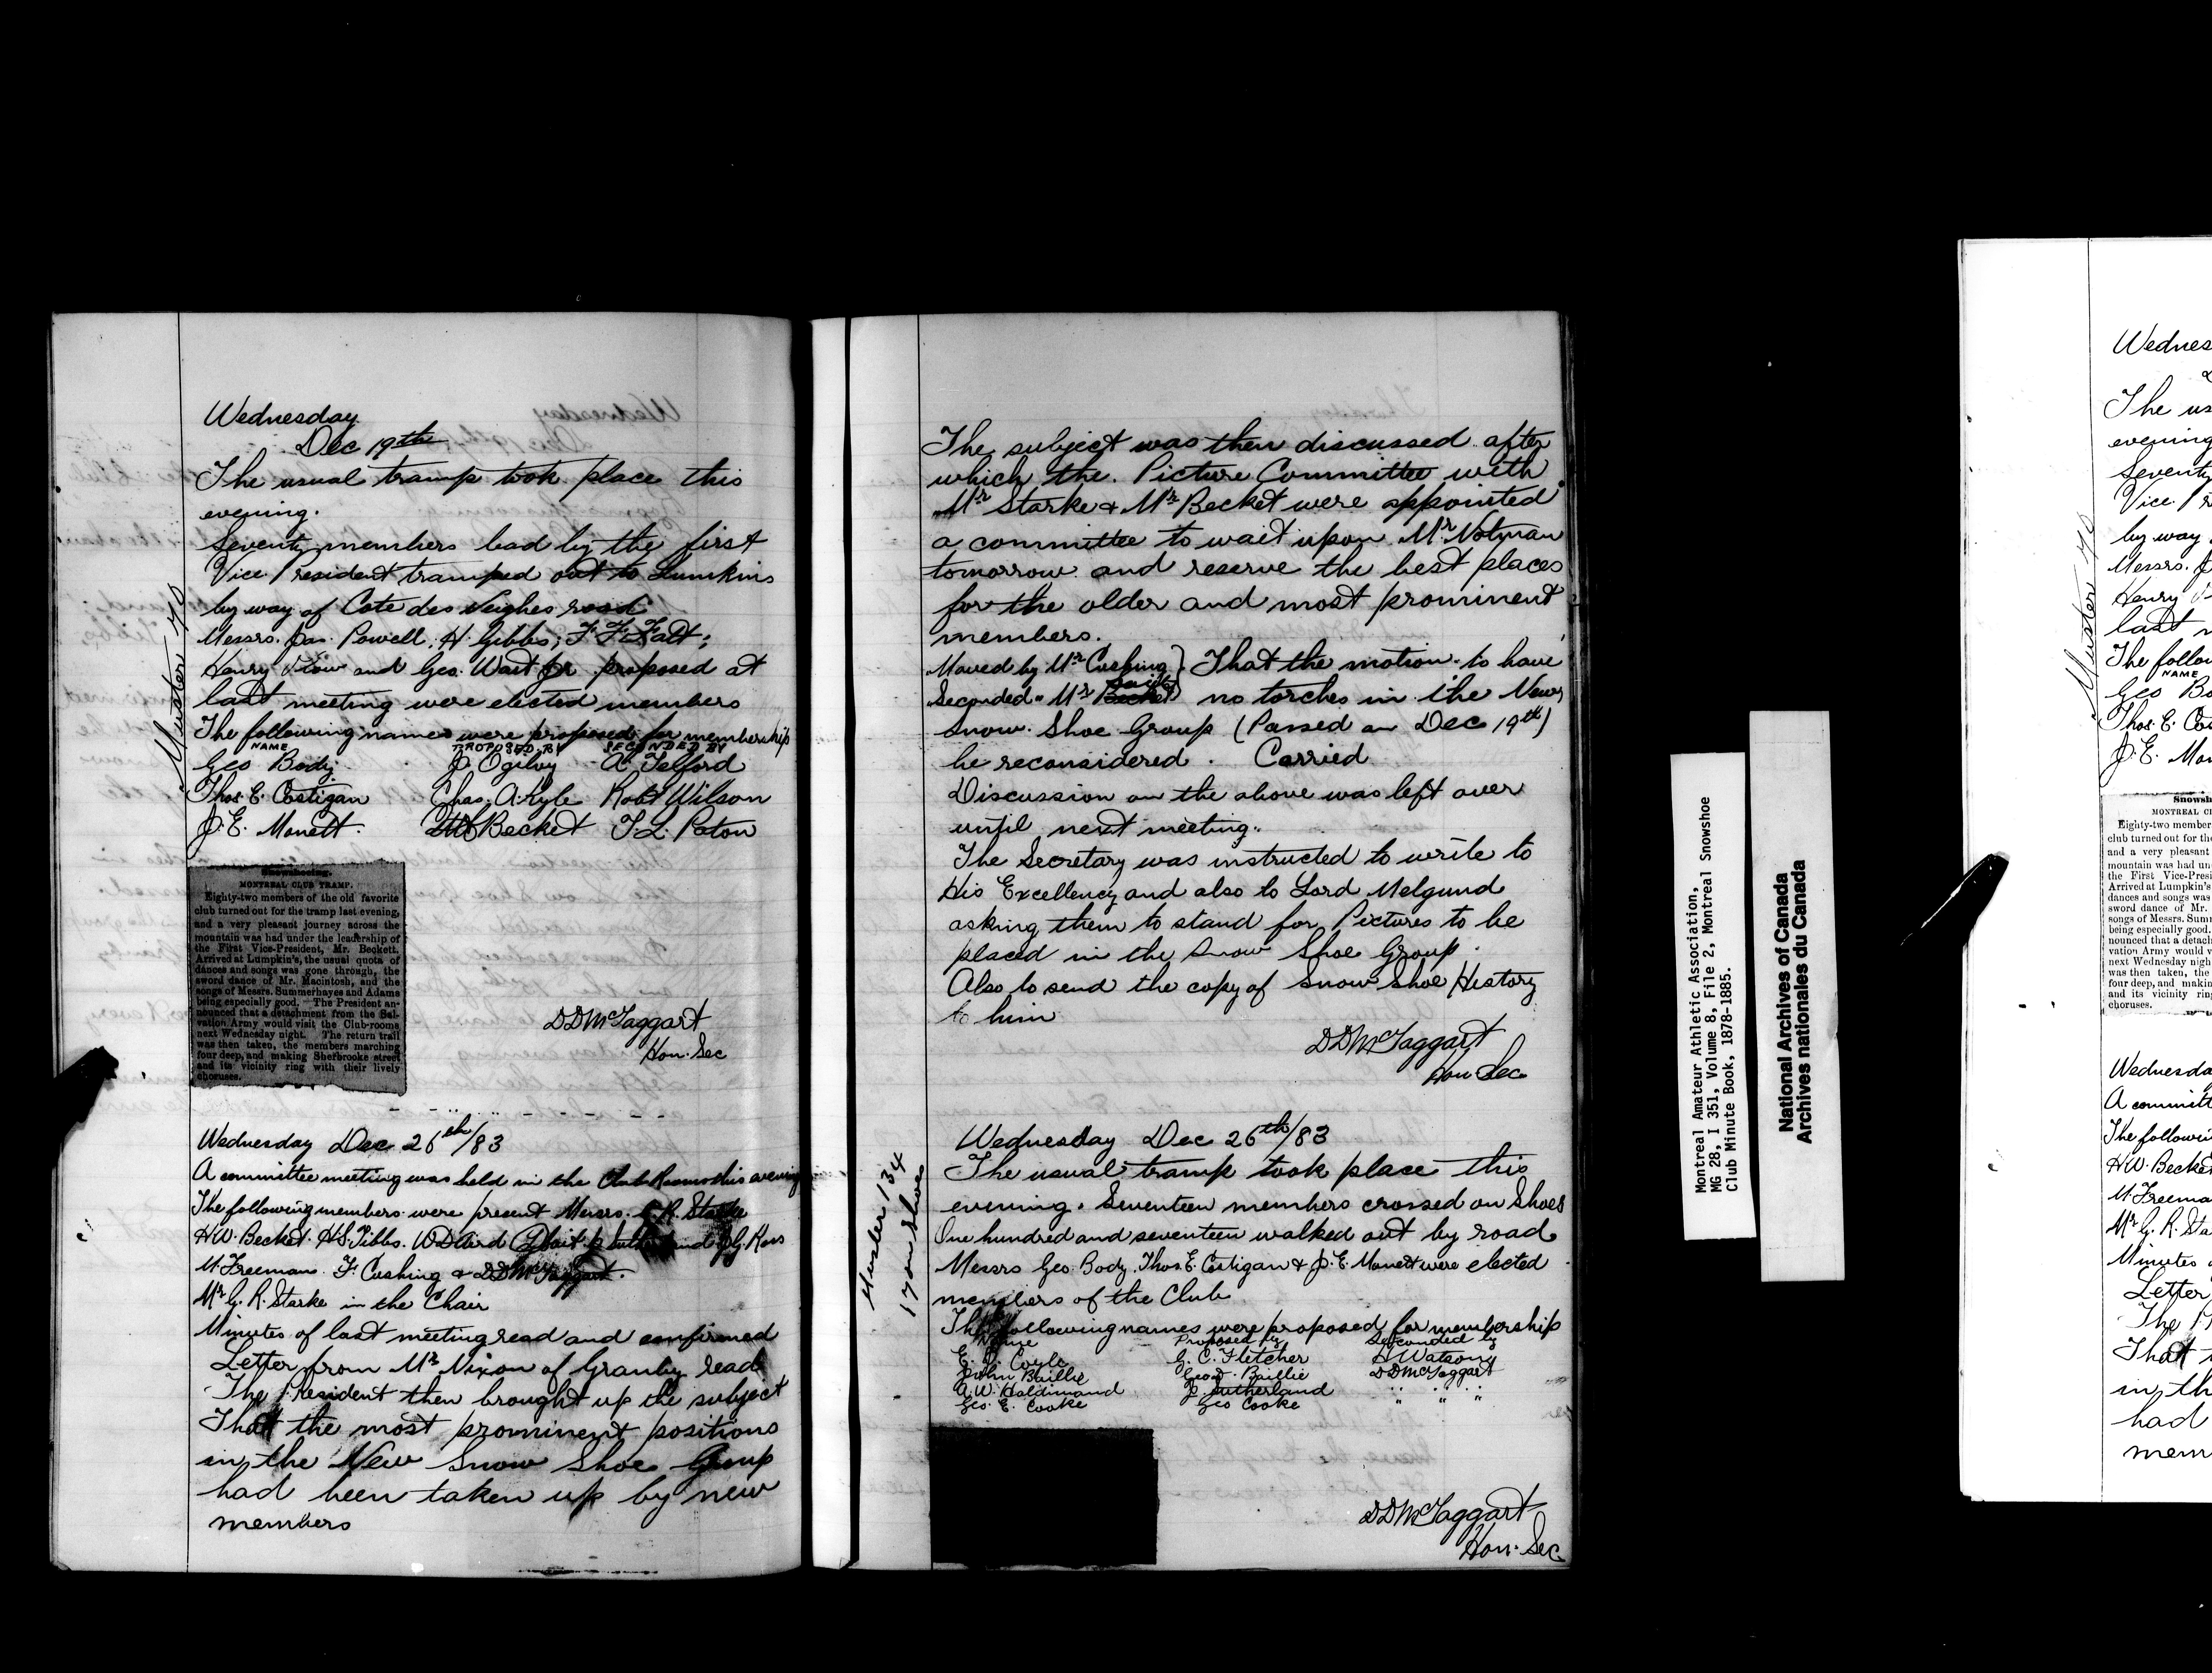 Wednesday
Dec 19th
The usual tramp took place this
evening.
Seventy members lead by the first
Vice President tramped out to Lumkins
by way of Cote des Neighes road
Messrs. Jas. Powell, H. Gibbs, F. F.
Henry and Geo. Wait Jr proposed at
last meeting were elected members
The following names were proposed for membership
NAME PROPOSED BY SECONDED BY
Geo Body J Ogilvy A. Telford
Thos. E. Costigan Chas. A. Kyle Robt Wilson
J. E. Monett. Becket T. L. Paton
Muster 70
Snowshoeing.
MONTREAL CLUB TRAMP.
Eighty-two members of the old favorite
club turned out for the tramp last evening,
and a very pleasant journey across the
mountain was had under the leadership of
the First Vice-President, Mr. Beckett.
Arrived at Lumpkin's, the usual quota of
dances and songs was gone through, the
sword dance of Mr. Macintosh, and the
songs of Messrs. Summerhayes and Adams
being especially good. The President an-
nounced that a detachment from the Sal-
vation Army would visit the Club-rooms
next Wednesday night. The return trail
was then taken, the members marching
four deep, and making Sherbrooke street
and its vicinity ring with their lively
choruses.
DDMcTaggart
Hon. Sec
Wednesday Dec 26th/83
A committee meeting was held in the Club Rooms this evening
The following members were present Messrs. G. R. Starke
H W. Becket. H S. Tibbs. W D Aird J. G. Ross
M. Freeman. F. Cushing & DDMcTaggart.
Mr G. R. Starke in the Chair
Minutes of last meeting read and confirmed
Letter from Mr Nixon of Granby read
The President then brought up the subject
That the most prominent positions
in the New Snow Shoe Group
had been taken up by new
members
The subject was then discussed after
which the Picture Committee with
Mr Starke & Mr Becket were appointed
a committee to wait upon Mr Notman
tomorrow and reserve the best places
for the older and most prominent
members.
Moved by Mr Cushing } That the motion to have
Seconded " Mr Becket no torches in the New
Snow Shoe Group (Passed on Dec 19th)
be reconsidered. Carried
Discussion on the above was left over
until next meeting.
The Secretary was instructed to write to
His Excellency and also to Lord Melgund
asking them to stand for Pictures to be
placed in the Snow Shoe Group.
Also to send the copy of Snow Shoe History
to him
DDMcTaggart
Hon Sec
Wednesday Dec 26th/83
The usual tramp took place this
evening. Seventeen members crossed on Shoes
One hundred and seventeen walked out by road
Messrs Geo. Body, Thos. E. Costigan & J. E. Monett were elected
members of the Club
The following names were proposed for membership
Name Proposed by Seconded by
E. Coyle G. C. Fletcher Watson
John Baillie Geo. Baillie DDMcTaggart
A. W. Haldimand J. Sutherland " " "
Geo. E. Cooke Geo Cooke " " "
Muster 134
17 on Shoes
DDMcTaggart
Hon. Sec
Montreal Amateur Athletic Association,
MG 28, I 351, Volume 8, File 2, Montreal Snowshoe
Club Minute Book, 1878-1885.
National Archives of Canada
Archives nationales du Canada
Wednes
The us
evening
Seventy
Vice Pr
by way
Messrs. J
Henry
last m
The follow
NAME
Geo Bo
Thos. E. Cos
J. E. Mon
Muster 70
Snowsh
MONTREAL CL
Eighty-two member
club turned out for the
and a very pleasant
mountain was had un
the First Vice-Presi
Arrived at Lumpkin's
dances and songs was
sword dance of Mr.
songs of Messrs. Summ
being especially good.
nounced that a detach
vation Army would v
next Wednesday nigh
was then taken, the
four deep, and makin
and its vicinity ring
choruses.
Wednesda
A committ
The followi
H W. Becket
M. Freema
Mr G. R. Sta
Minutes o
Letter
The Pr
That t
in th
had
mem